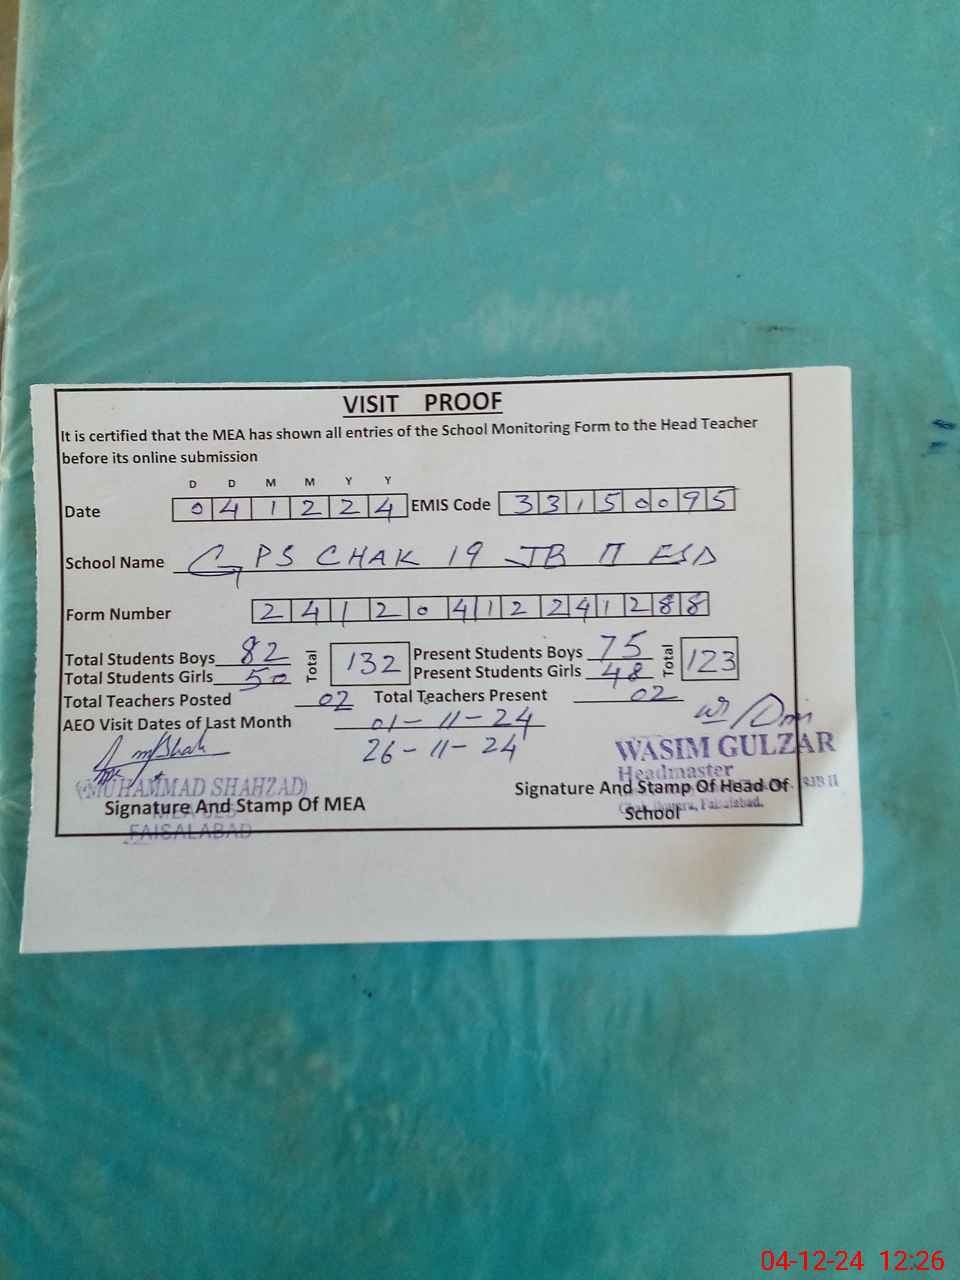 VISIT PROOF
It is certified that the MEA has shown all entries of the School Monitoring Form to the Head Teacher
before its online submission
D D M M Y Y
Date 041224 EMIS Code 33150095
School Name GPS CHAK 19 JB II FSD
Form Number 24120412241288
Total Students Boys 82 Total 132 Present Students Boys 75 Total 123
Total Students Girls 50 Present Students Girls 48
Total Teachers Posted 02 Total Teachers Present 02
AEO Visit Dates of Last Month 01-11-24
26-11-24
WASIM GULZAR
Headmaster
(MUHAMMAD SHAHZAD)
Signature And Stamp Of MEA
Signature And Stamp Of Head Of
School
Faisalabad.
FAISALABAD
04-12-24 12:26